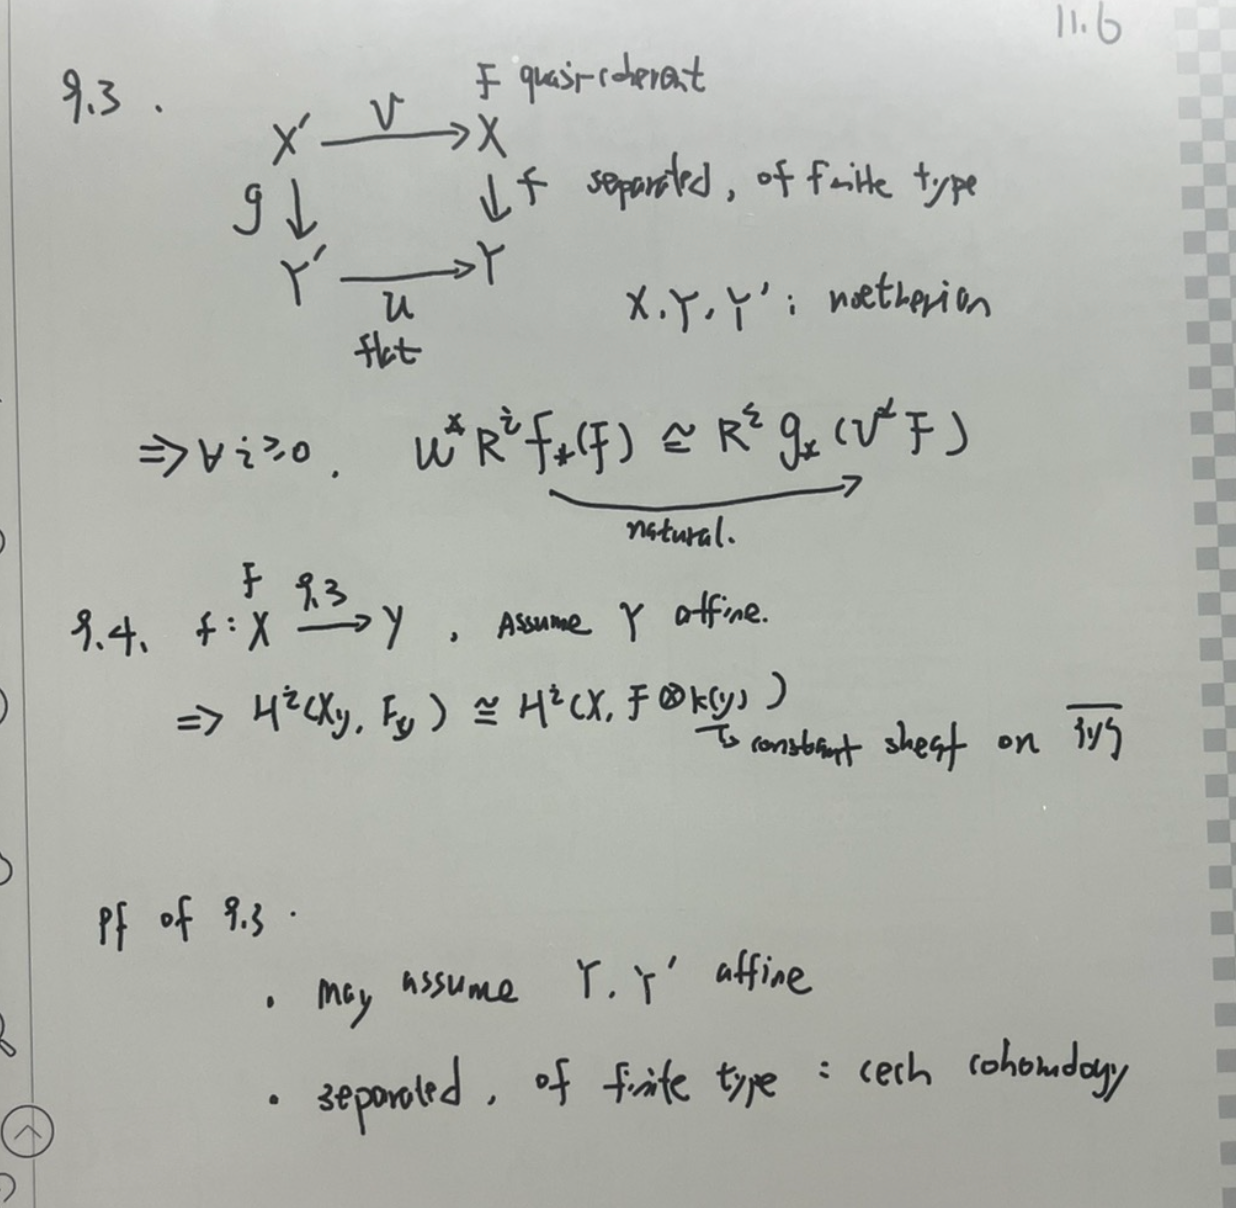 11.6
9.3.
F quasi-coherent
X' —v→ X
g ↓ ↓ f separated, of finite type
Y' —u→ Y
flat
X, Y, Y' : noetherian
⇒ ∀ i ≥ 0. u* Rⁱ f_*(F) ≅ Rⁱ g_*(v* F)
natural.
9.4. f : X —9.3→ Y, Assume Y affine.
F
⇒ Hⁱ(X_y, F_y) ≅ Hⁱ(X, F ⊗ k(y))
↳ constant sheaf on \overline{\{y\}}
Pf of 9.3.
• may assume Y, Y' affine
• separated, of finite type : cech cohomology